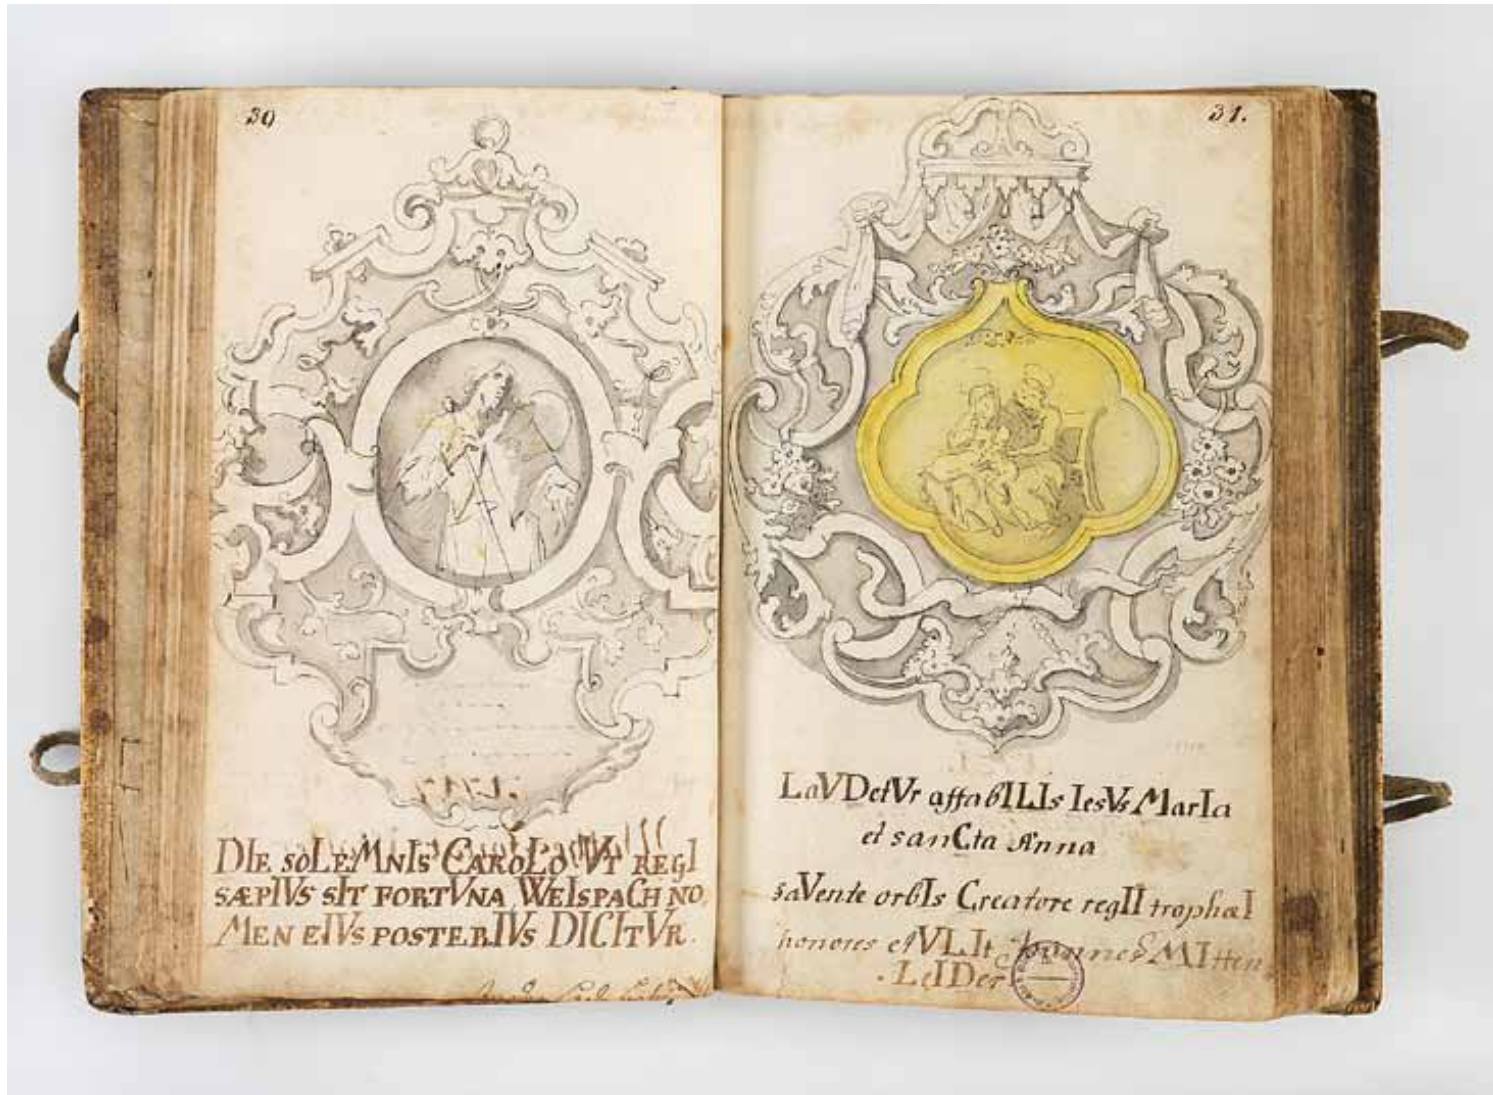 30
DIE soLeMnIs CaroLo Vt REGI
SÆPIVS SIt FORTVNA WEISPACH NO
MEN EIVS POSTERIVS DICItVR.
31.
LaVDetVr affabILIs IesVs MarIa
et sanCta Anna
faVente orbIs Creatore regII trophæI
honores etVLIt MItten
LeIDer